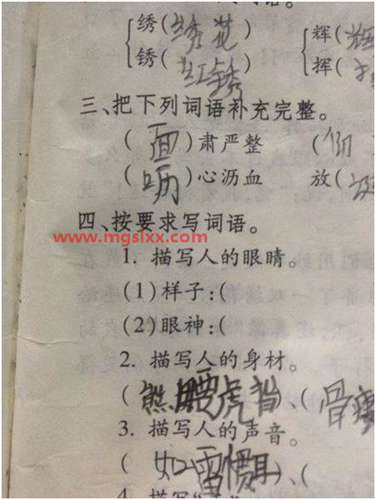 绣(绣花) 辉(辉
锈(红锈) 挥(
三、把下列词语补充完整。
(面)肃严整 (
( )心沥血 放(
四、按要求写词语。
www.mgslxx.com
1. 描写人的眼睛。
(1)样子:(
(2)眼神:(
2. 描写人的身材。
(熊腰虎背)、(骨瘦
3. 描写人的声音。
(如雷惯耳)、(
4. 描写